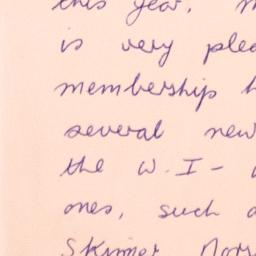 this year.
is very plea
membership h
several new
the W.I -
ones, such a
Skinner Norr